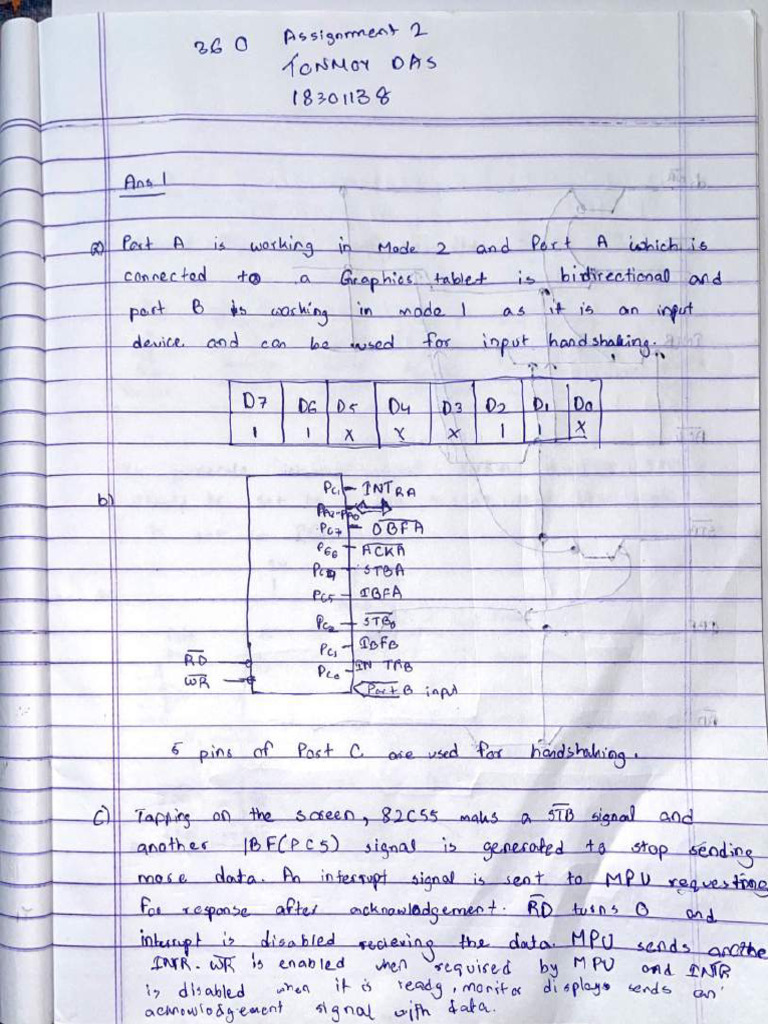 360 Assignment 2
TONMOY DAS
18301138
Ans 1
a) Port A is working in Mode 2 and Port A which is
connected to a Graphics tablet is bidirectional and
port B is working in mode 1 as it is an input
device and can be used for input handshaking.
D7 D6 D5 D4 D3 D2 D1 D0
1 1 X X X 1 1 X
b)
PC1 INTRA
PA7-PA0
PC7 OBFA
PC6 ACKA
STBA
PC5 IBFA
PC2 STBB
PC1 IBFB
PC0 INTRB
RD
WR
Port B input
5 pins of Port C are used for handshaking.
c) Tapping on the screen, 82C55 maks a STB signal and
another IBF(PC5) signal is generated to stop sending
more data. An interrupt signal is sent to MPU requesting
for response after acknowladgement. RD turns 0 and
interrupt is disabled recieving the data. MPU sends another
INTR. WR is enabled when required by MPU and INTR
is disabled when it is ready, monitor displays sends an
acknowledgement signal with data.